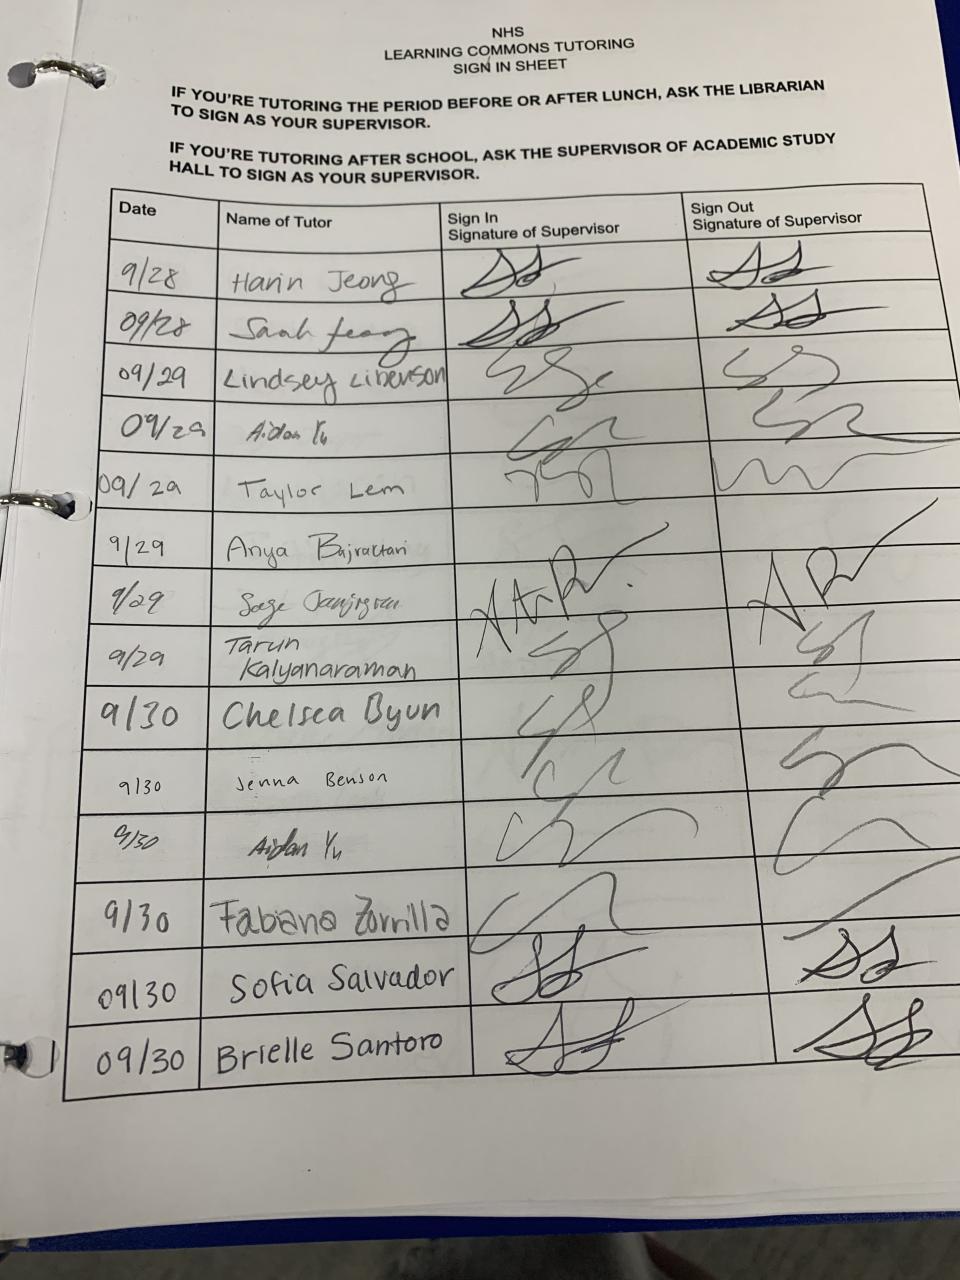 NHS
LEARNING COMMONS TUTORING
SIGN IN SHEET
IF YOU'RE TUTORING THE PERIOD BEFORE OR AFTER LUNCH, ASK THE LIBRARIAN
TO SIGN AS YOUR SUPERVISOR.
IF YOU'RE TUTORING AFTER SCHOOL, ASK THE SUPERVISOR OF ACADEMIC STUDY
HALL TO SIGN AS YOUR SUPERVISOR.
Date Name of Tutor Sign In Signature of Supervisor Sign Out Signature of Supervisor
9/28 Harin Jeong
09/28 Sarah Jeong
09/29 Lindsey Liberson
09/29 Aidan Yu
09/29 Taylor Lem
9/29 Anya Bajractari
9/29 Sage
9/29 Tarun Kalyanaraman
9/30 Chelsea Byun
9/30 Jenna Benson
9/30 Aidan Yu
9/30 Fabiana Zorrilla
09/30 Sofia Salvador
09/30 Brielle Santoro